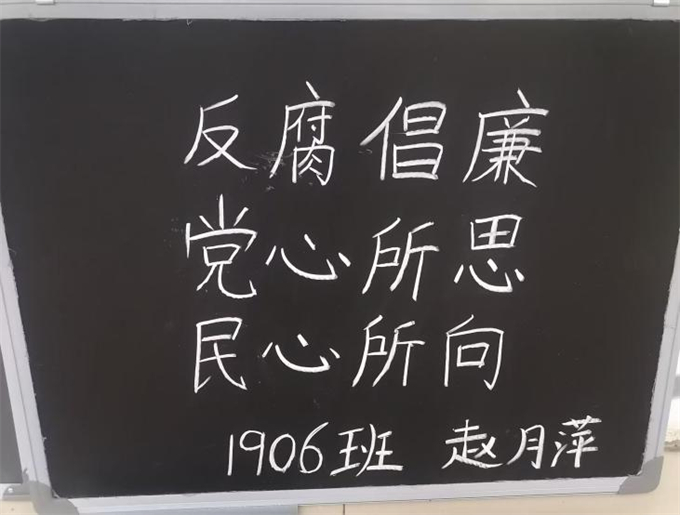 反腐倡廉
党心所思
民心所向
1906班 赵月萍